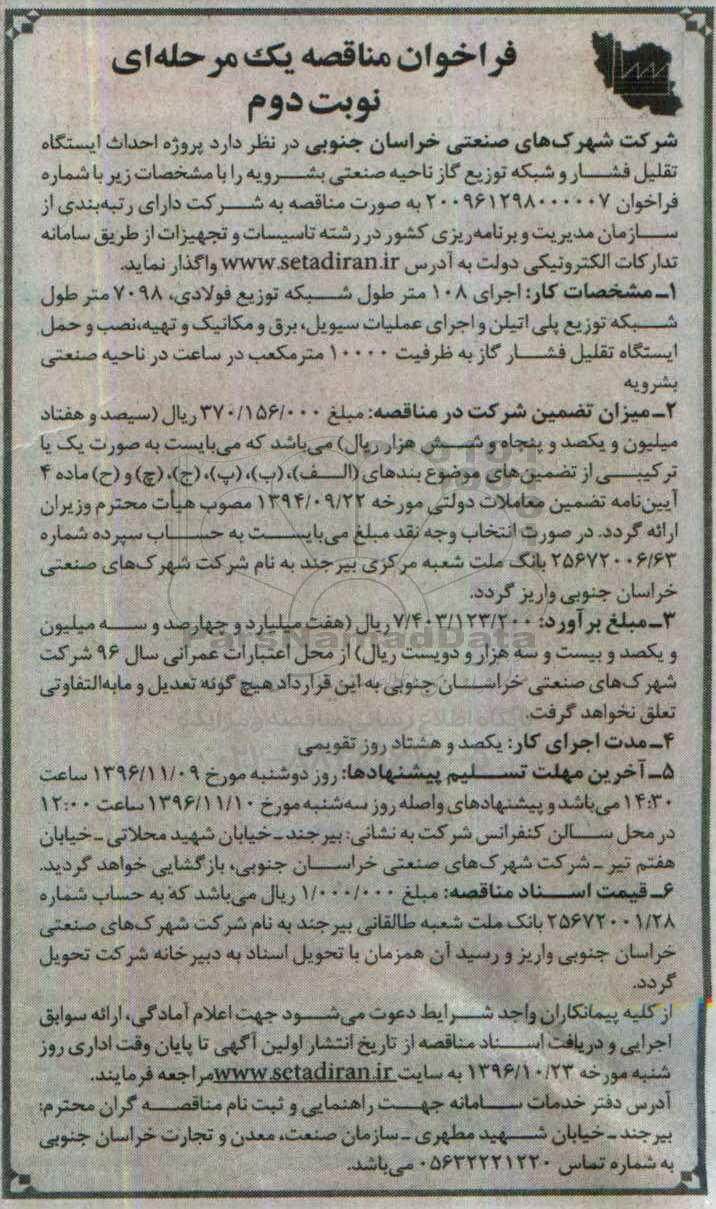 فراخوان مناقصه یک مرحله‌ای
نوبت دوم
شرکت شهرک‌های صنعتی خراسان جنوبی در نظر دارد پروژه احداث ایستگاه
تقلیل فشار و شبکه توزیع گاز ناحیه صنعتی بشرویه را با مشخصات زیر با شماره
فراخوان ۲۰۰۹۶۱۲۹۸۰۰۰۰۰۷ به صورت مناقصه به شرکت دارای رتبه‌بندی از
سازمان مدیریت و برنامه‌ریزی کشور در رشته تاسیسات و تجهیزات از طریق سامانه
تدارکات الکترونیکی دولت به آدرس www.setadiran.ir واگذار نماید.
۱ـ مشخصات کار: اجرای ۱۰۸ متر طول شبکه توزیع فولادی، ۷۰۹۸ متر طول
شبکه توزیع پلی اتیلن و اجرای عملیات سیویل، برق و مکانیک و تهیه،نصب و حمل
ایستگاه تقلیل فشار گاز به ظرفیت ۱۰۰۰۰ مترمکعب در ساعت در ناحیه صنعتی
بشرویه
۲ـ میزان تضمین شرکت در مناقصه: مبلغ ۳۷۰/۱۵۶/۰۰۰ ریال (سیصد و هفتاد
میلیون و یکصد و پنجاه و شش هزار ریال) می‌باشد که می‌بایست به صورت یک یا
ترکیبی از تضمین‌های موضوع بندهای (الف)، (ب)، (پ)، (ج)، (چ) و (ح) ماده ۴
آیین‌نامه تضمین معاملات دولتی مورخه ۱۳۹۴/۰۹/۲۲ مصوب هیأت محترم وزیران
ارائه گردد. در صورت انتخاب وجه نقد مبلغ می‌بایست به حساب سپرده شماره
۲۵۶۷۲۰۰۶/۶۳ بانک ملت شعبه مرکزی بیرجند به نام شرکت شهرک‌های صنعتی
خراسان جنوبی واریز گردد.
۳ـ مبلغ برآورد: ۷/۴۰۳/۱۲۳/۲۰۰ ریال (هفت میلیارد و چهارصد و سه میلیون
و یکصد و بیست و سه هزار و دویست ریال) از محل اعتبارات عمرانی سال ۹۶ شرکت
شهرک‌های صنعتی خراسان جنوبی به این قرارداد هیچ گونه تعدیل و مابه‌التفاوتی
تعلق نخواهد گرفت.
۴ـ مدت اجرای کار: یکصد و هشتاد روز تقویمی
۵ـ آخرین مهلت تسلیم پیشنهادها: روز دوشنبه مورخ ۱۳۹۶/۱۱/۰۹ ساعت
۱۴:۳۰ می‌باشد و پیشنهادهای واصله روز سه‌شنبه مورخ ۱۳۹۶/۱۱/۱۰ ساعت ۱۲:۰۰
در محل سالن کنفرانس شرکت به نشانی: بیرجند ـ خیابان شهید محلاتی ـ خیابان
هفتم تیر ـ شرکت شهرک‌های صنعتی خراسان جنوبی، بازگشایی خواهد گردید.
۶ـ قیمت اسناد مناقصه: مبلغ ۱/۰۰۰/۰۰۰ ریال می‌باشد که به حساب شماره
۲۵۶۷۲۰۰۱/۲۸ بانک ملت شعبه طالقانی بیرجند به نام شرکت شهرک‌های صنعتی
خراسان جنوبی واریز و رسید آن همزمان با تحویل اسناد به دبیرخانه شرکت تحویل
گردد.
از کلیه پیمانکاران واجد شرایط دعوت می‌شود جهت اعلام آمادگی، ارائه سوابق
اجرایی و دریافت اسناد مناقصه از تاریخ انتشار اولین آگهی تا پایان وقت اداری روز
شنبه مورخه ۱۳۹۶/۱۰/۲۳ به سایت www.setadiran.ir مراجعه فرمایند.
آدرس دفتر خدمات سامانه جهت راهنمایی و ثبت نام مناقصه گران محترم:
بیرجند ـ خیابان شهید مطهری ـ سازمان صنعت، معدن و تجارت خراسان جنوبی
به شماره تماس ۰۵۶۳۲۲۲۱۲۲۰ می‌باشد.
ParsNamadData